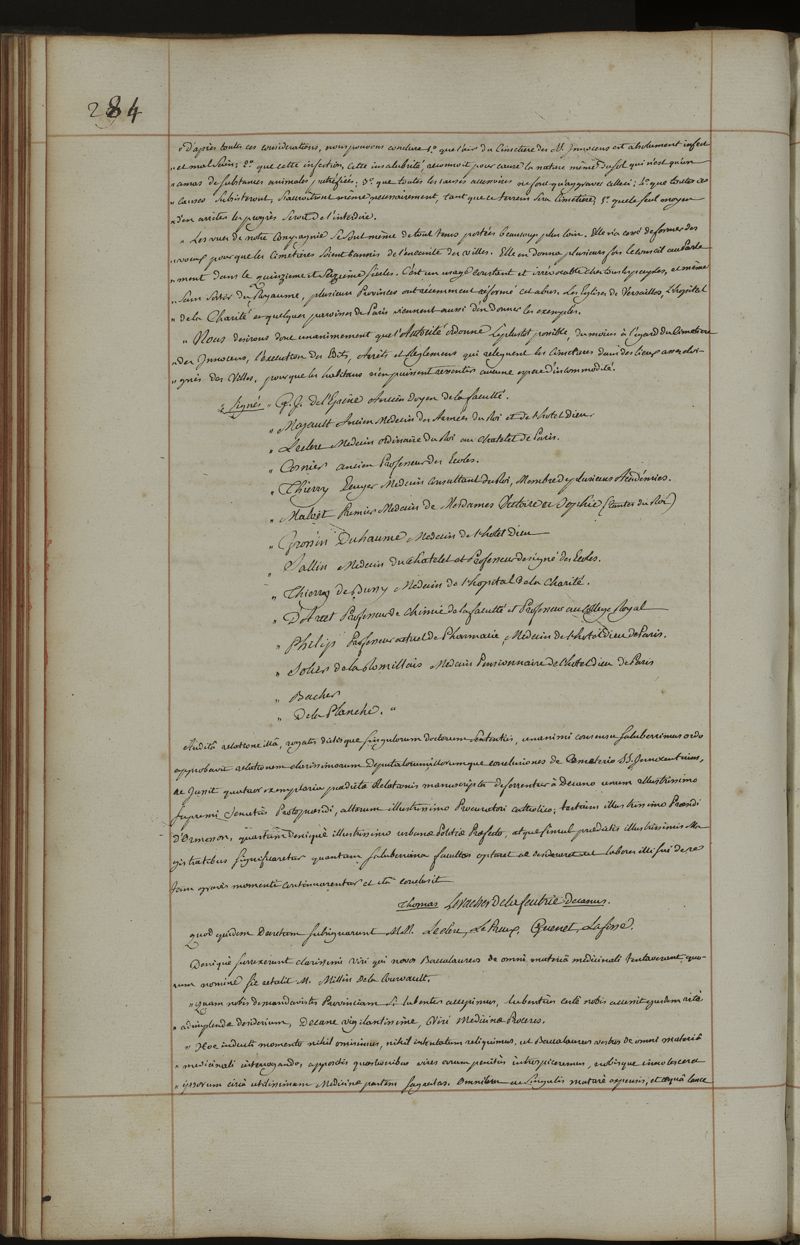 284
"D'après toutes ces considerations, nous pouvons conclure 1.° que l'air du Cimetiere des SS. Innocens est absolument infect
" et mal sain; 2.° que cette infection, cette insalubrité, reconnoit pour cause la nature même du sol qui n'est qu'un
" amas de substances animales putréfiées; 3.° que toutes les causes accessoires ne font qu'aggraver celle ci; 4.° que toutes ces
" causes subsisteront, s'accroitront même necessairement, tant que ce terrein sera Cimetiere; 5.° que le seul moyen
" d'en arrêter les progrès seroit de l'interdire.
" Les vues de notre Compagnie se sont même de tout tems portées beaucoup plus loin. Elle n'a cessé de former des
" voeux pour que les Cimetieres soient bannis de l'enceinte des villes. Elle en donna plusieurs fois le conseil au Parle
" ment dans le quinzieme et seizieme siecles. C'est un usage constant et irrévocable chez tous les peuples, et même
" sans sortir du Royaume, plusieurs Provinces ont récemment reformé cet abus. Les Eglises de Versailles, l'hopital
" de la Charité et quelques paroisses de Paris viennent aussi d'en donner les exemples.
" Nous desirons donc unanimement que l'Autorité ordonne le plustot possible, du moins à l'egard du Cimetiere
" des Innocens, l'execution des Edits, Arrêts et Reglemens qui releguent les Cimetieres dans des lieux assez eloi-
" gnés des Villes, pour que les habitans n'en puissent ressentir aucune espece d'incommodité.
" Signés " P. J. de l'Epine Ancien doyen de la faculté.
" Majault Ancien Médecin des Armées du Roi et de l'hotel Dieu
" Leclerc Medecin ordinaire du Roi au Chatelet de Paris.
" Cosnier ancien Professeur des Ecoles.
" Thierry Medecin Consultant du Roi, Membre de plusieurs Académies.
" Maloet Premier Medecin de Mesdames Victoire et Sophie (tantes du Roi)
" Grossin Duhaume Medecin de l'hotel Dieu
" Sallin Medecin du Chatelet et Professeur designé des Ecoles.
" Thierry de Bussy Medecin de l'hopital de la Charité.
" D'Arcet Professeur de Chimie de la faculté et Professeur au College Royal
" Philip Professeur actuel de Pharmacie, Medecin de l'hotel Dieu de Paris.
" Solier de la Romillais Medecin Pensionnaire de l'hotel Dieu de Paris
" Bacher
" De la Planche. "
Auditâ relatione illâ, rogatis dictisque singulorum doctorum sententiis, unanimi consensu saluberrimus ordo
approbavit relationem clarissimorum Deputatorum, illorumque conclusiones de Cemeterio SS. Innocentium,
ac jussit quatuor exemplaria praedictae Relationis manuscripta deferrentur à Decano unum illustrissimo
supremi Senatûs Protopraesidi, alterum illustrissimo Procuratori catholico, tertium illustrissimo Praesidi
d'Ormesson, quartum denique illustrissimo urbanae Politiae Praefecto, atque simul praedictis illustrissimis Ma
gistratibus significaretur quantum saluberrima facultas optaret ac desideraret ut labores illi sui de re
tam gravis momenti continuarentur et ita conclusit
Thomas Levacher de la feutrie Decanus.
quod quidem Decretum subsignarunt M.M. Leclerc, Le Preux, Guenet, Lafisse.
Denique surrexerunt clarissimi viri qui novos Baccalaureos de omni materiâ medicinali tentaverunt, quo-
rum nomine sic retulit M. Millin de la Courvault.
" quam nobis demandavistis Provinciam si lubenter accepimus, lubentius certè nobis accessit ejusdem ritè
" adimplendae desiderium, Decane vigilantissime, Viri Medicinae Proceres.
" Hoc indicti momento nihil omisimus, nihil intentatum reliquimus, ut Baccalaureos vestros de omni materiâ
" medicinali interrogando, appositis quaestionibus vires eorum penitùs introspiceremus, vobisque innotesceret
" ipsorum circà utilissimam Medicinae partem sagacitas. Omnibus ac singulis maturè expensis, et aequâ lance